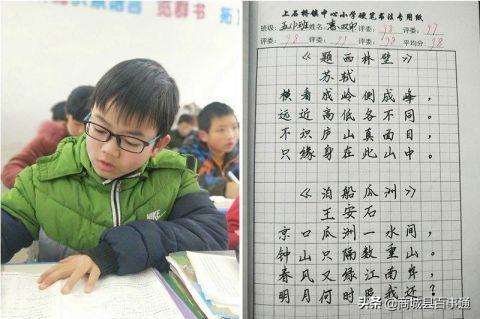 群书 拓
NIKE
上石桥镇中心小学硬笔书法专用纸
班级: 班 姓名: 评委: 98 评委: 97
评委: 98 评委: 评委: 98 平均分 98
《题西林壁》
苏轼
横看成岭侧成峰，
远近高低各不同。
不识庐山真面目，
只缘身在此山中。
《泊船瓜洲》
王安石
京口瓜洲一水间，
钟山只隔数重山。
春风又绿江南岸，
明月何时照我还？
头条@商城县百事通